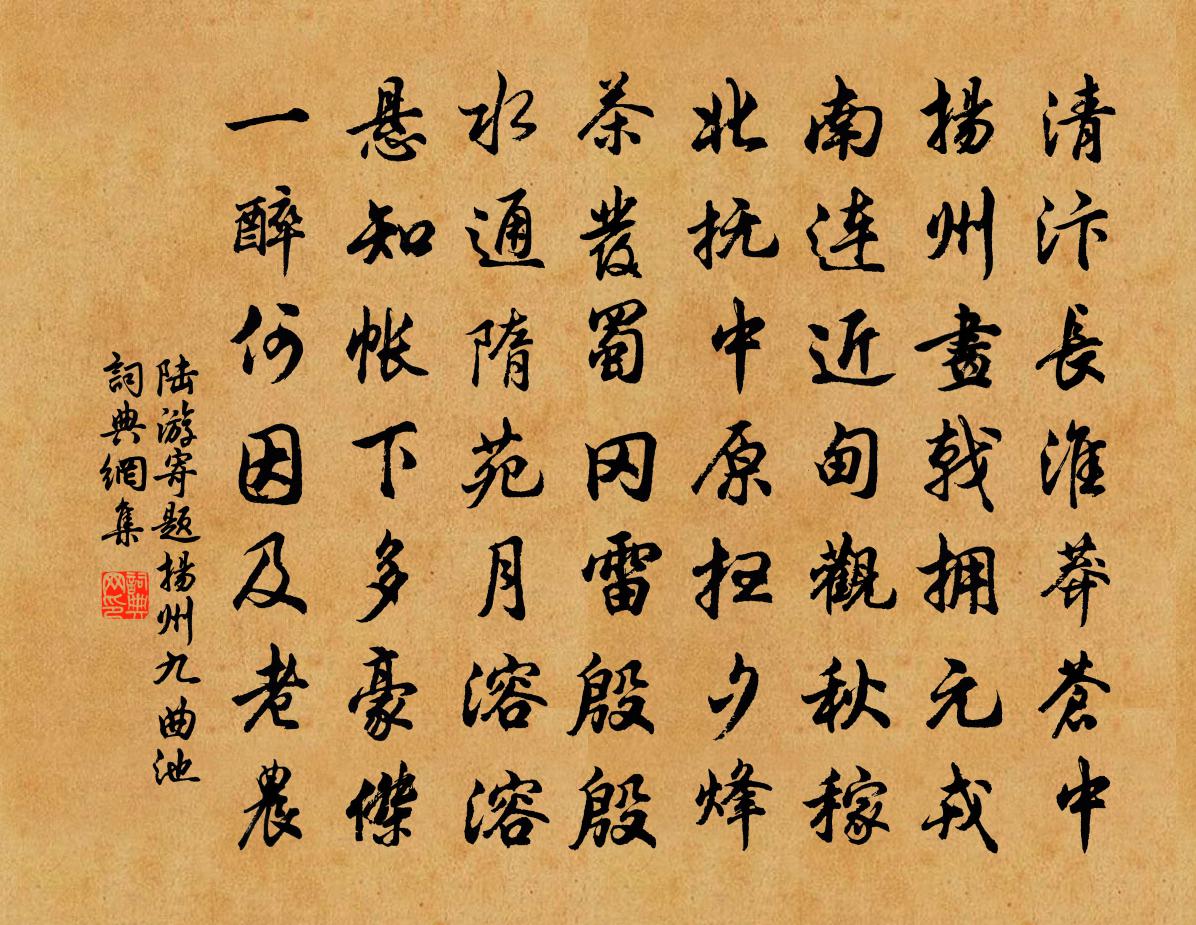 清汴長淮莽蒼中
揚州畫戟拥元戎
南连近甸觀秋稼
北抚中原扫夕烽
茶發蜀冈雷殷殷
水通隋苑月溶溶
悬知帐下多豪傑
一醉何因及老農
陆游寄题揚州九曲池
詞典網集
詞典网印